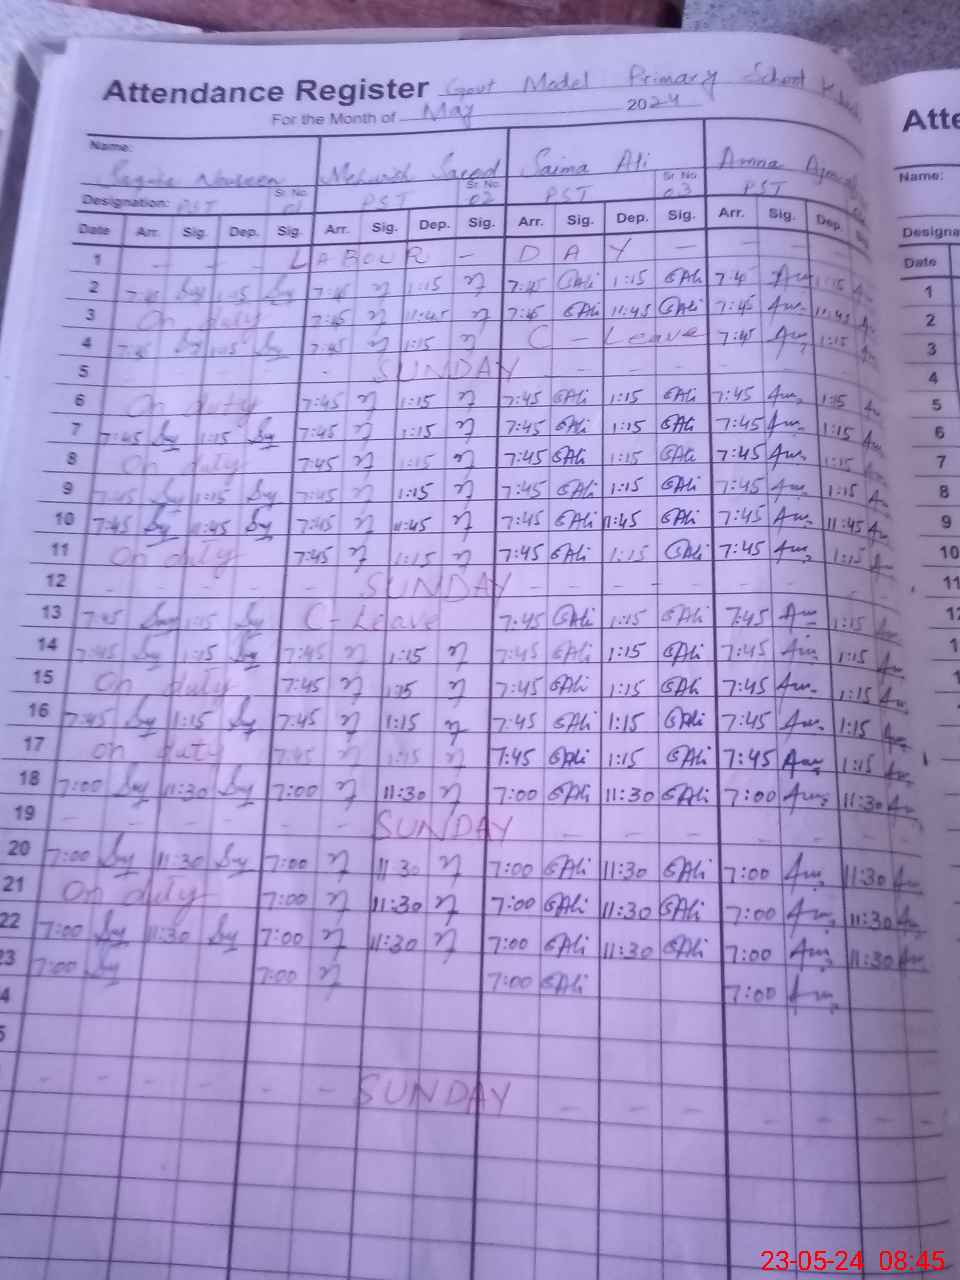 Attendance Register Govt Model Primary School
For the Month of May 2024
Name: Naureen Mehwish Saeed Saima Ali Amna
Designation: PST Sr. No. 01 PST Sr. No. 02 PST Sr. No. 03 PST
Date Arr. Sig. Dep. Sig. Arr. Sig. Dep. Sig. Arr. Sig. Dep. Sig. Arr. Sig. Dep.
1 - - - LABOUR - DAY - - -
2 7:45 1:15 7:45 1:15 7:45 SAli 1:15 SAli 7:45 Am 1:15 Am
3 On duty 7:45 11:45 7:45 SAli 11:45 SAli 7:45 Am 11:45 Am
4 7:45 1:15 7:45 1:15 C - Leave 7:45 Am 1:15 Am
5 - - - - - SUNDAY - - - - -
6 On duty 7:45 1:15 7:45 SAli 1:15 SAli 7:45 Am 1:15 Am
7 7:45 Sy 1:15 Sy 7:45 1:15 7:45 SAli 1:15 SAli 7:45 Am 1:15 Am
8 On duty 7:45 1:15 7:45 SAli 1:15 SAli 7:45 Am 1:15 Am
9 7:45 Sy 1:15 Sy 7:45 1:15 7:45 SAli 1:15 SAli 7:45 Am 1:15 Am
10 7:45 Sy 11:45 Sy 7:45 11:45 7:45 SAli 11:45 SAli 7:45 Am 11:45 Am
11 On duty 7:45 1:15 7:45 SAli 1:15 SAli 7:45 Am 1:15 Am
12 - - - - - SUNDAY - - - - - -
13 7:45 Sy 1:15 Sy C - Leave 7:45 SAli 1:15 SAli 7:45 Am 1:15 Am
14 7:45 Sy 1:15 Sy 7:45 1:15 7:45 SAli 1:15 SAli 7:45 Am 1:15 Am
15 On duty 7:45 1:15 7:45 SAli 1:15 SAli 7:45 Am 1:15 Am
16 7:45 Sy 1:15 Sy 7:45 1:15 7:45 SAli 1:15 SAli 7:45 Am 1:15 Am
17 On duty 7:45 7:45 SAli 1:15 SAli 7:45 Am 1:15 Am
18 7:00 Sy 11:30 Sy 7:00 11:30 7:00 SAli 11:30 SAli 7:00 Am 11:30 Am
19 - - - - - - SUNDAY - - - - - -
20 7:00 Sy 11:30 Sy 7:00 11:30 7:00 SAli 11:30 SAli 7:00 Am 11:30 Am
21 On duty 7:00 11:30 7:00 SAli 11:30 SAli 7:00 Am 11:30 Am
22 7:00 Sy 11:30 Sy 7:00 11:30 7:00 SAli 11:30 SAli 7:00 Am 11:30 Am
23 7:00 Sy 7:00 7:00 SAli 7:00 Am
4
5
- - - - - - SUNDAY - - - - - -
Atte
Name:
Designa
Date
1
2
3
4
5
6
7
8
9
10
11
12
23-05-24 08:45